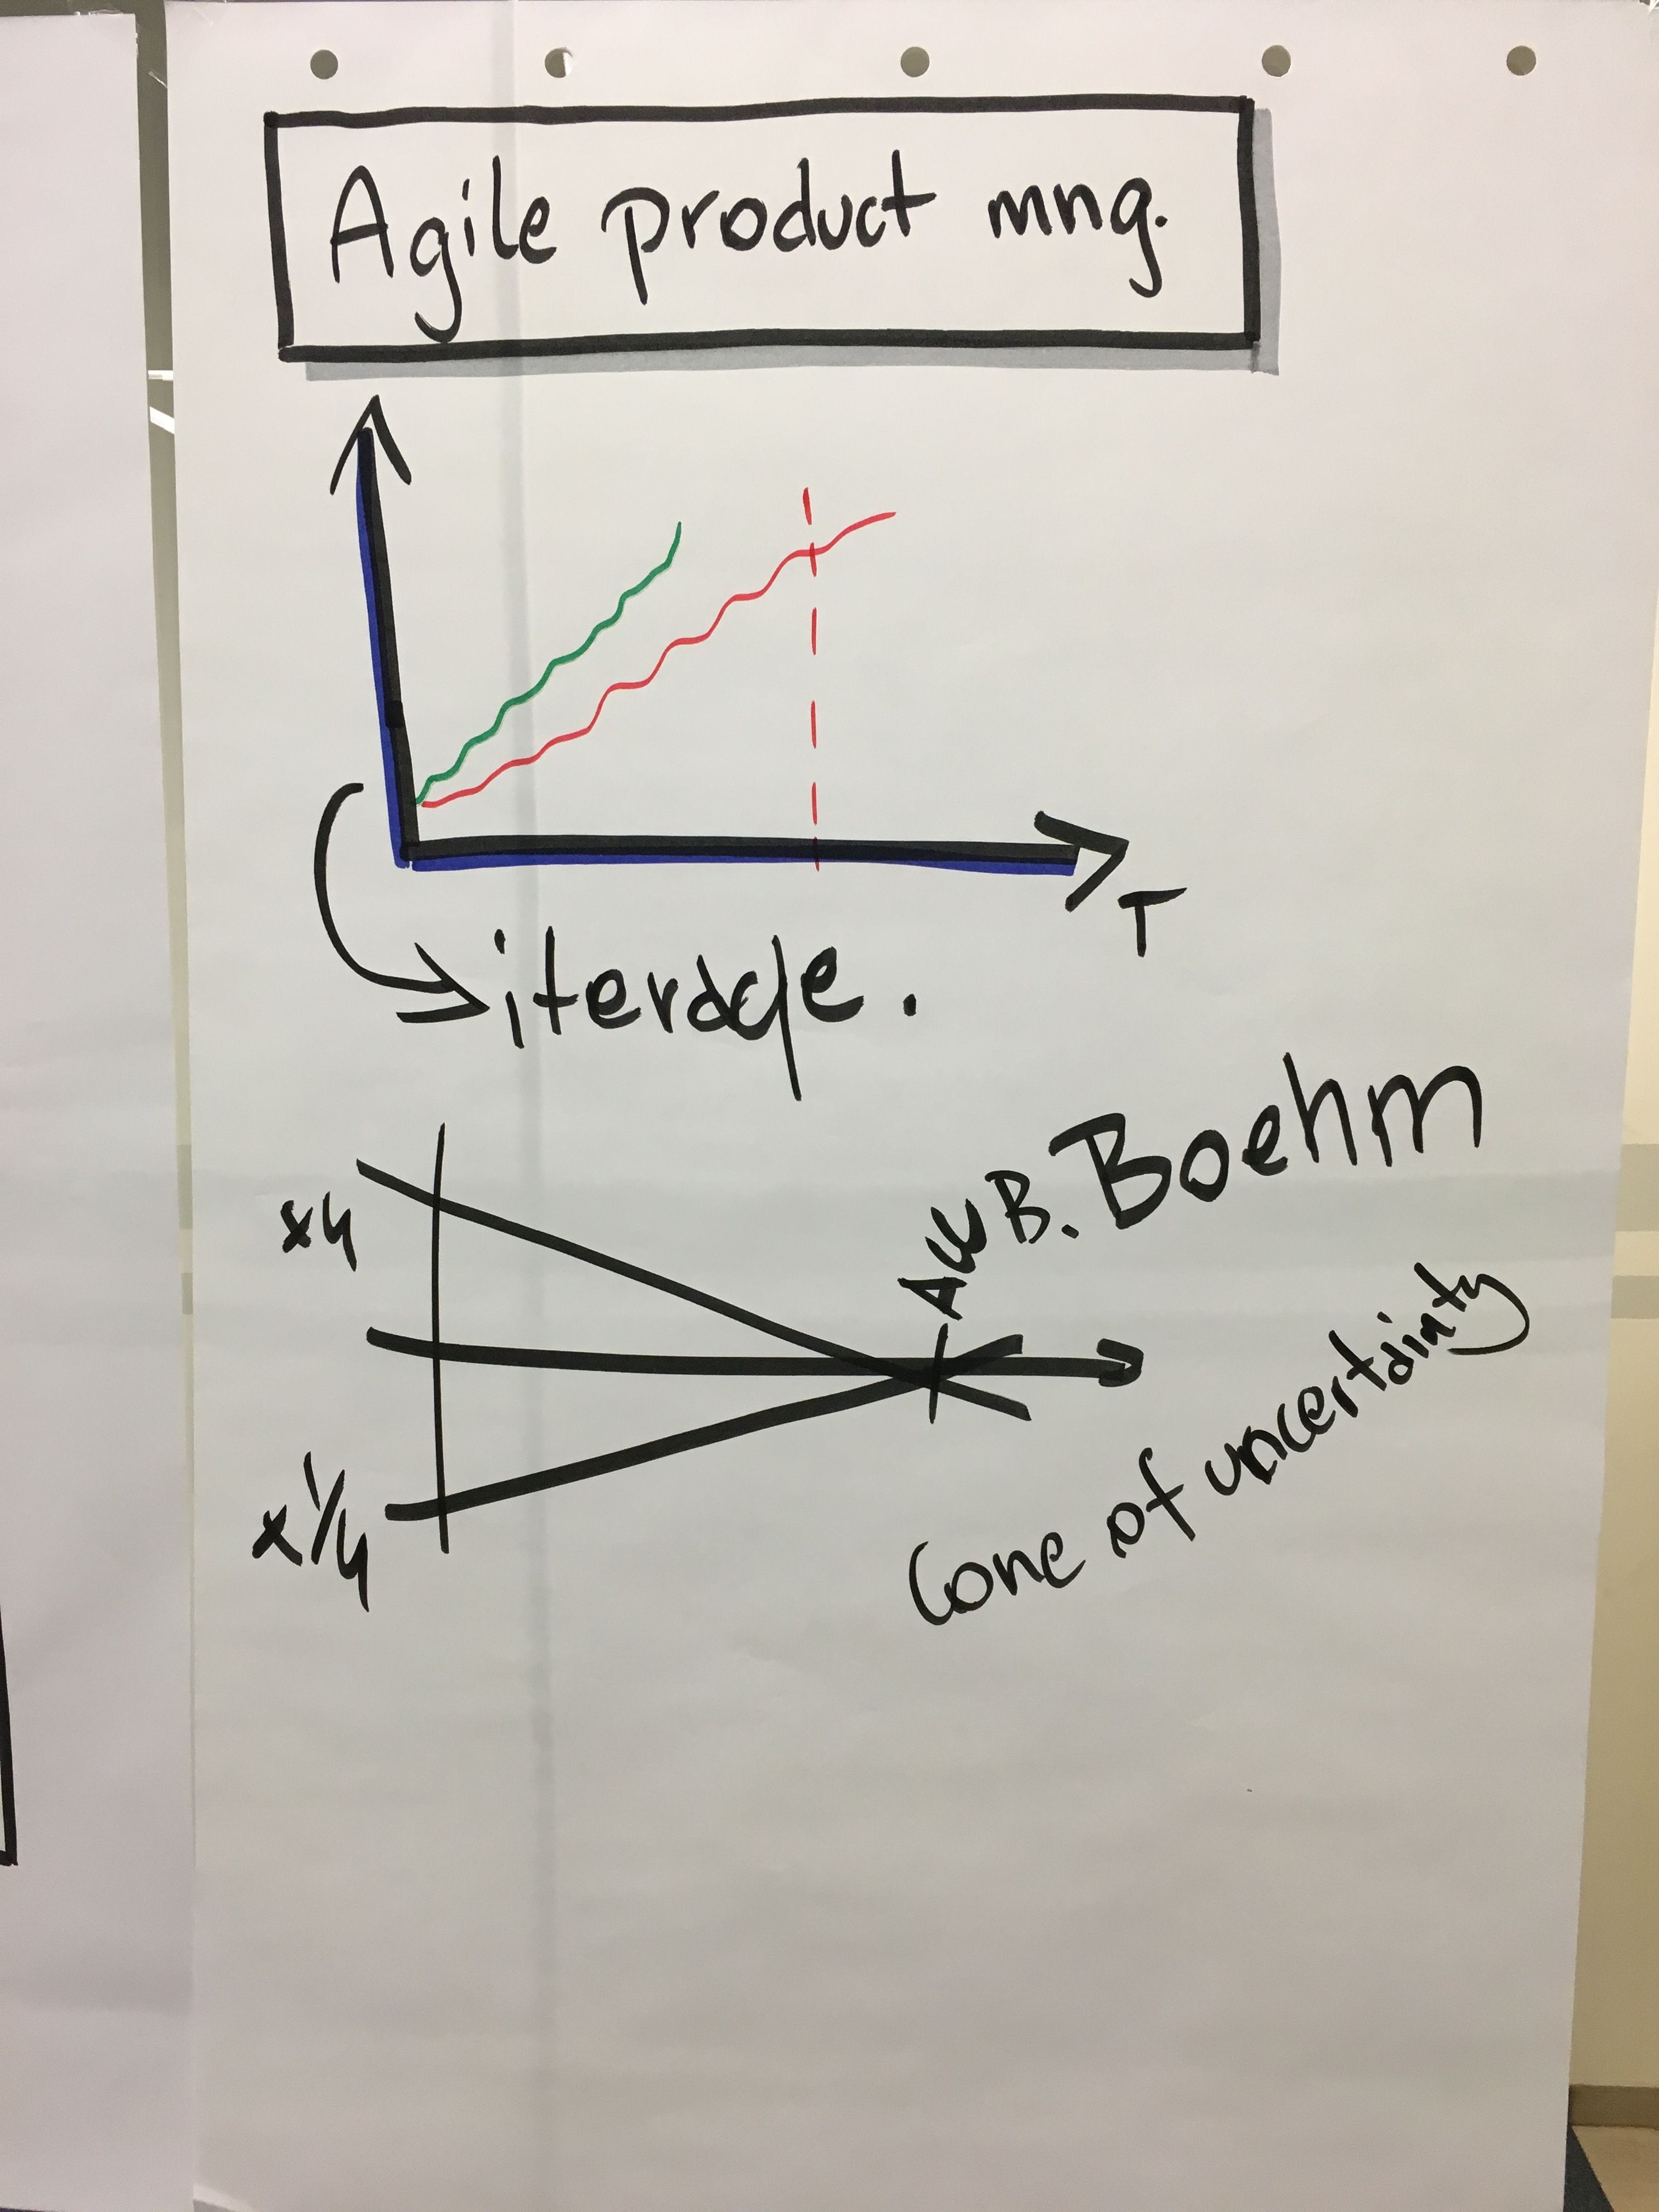 Agile product mng.
T
iteracje.
x4
B. Boehm
x 1/4
Cone of uncertainty